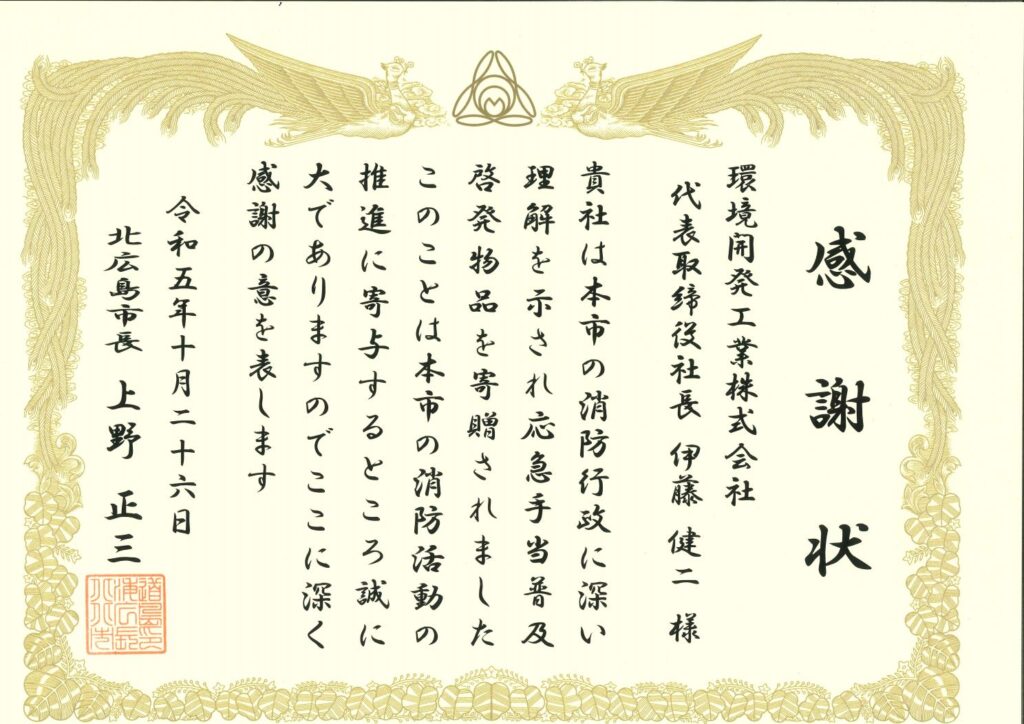 感謝状
環境開発工業株式会社
代表取締役社長 伊藤 健二 様
貴社は本市の消防行政に深い
理解を示され応急手当普及
啓発物品を寄贈されました
このことは本市の消防活動の
推進に寄与するところ誠に
大でありますのでここに深く
感謝の意を表します
令和五年十月二十六日
北広島市長 上野 正三